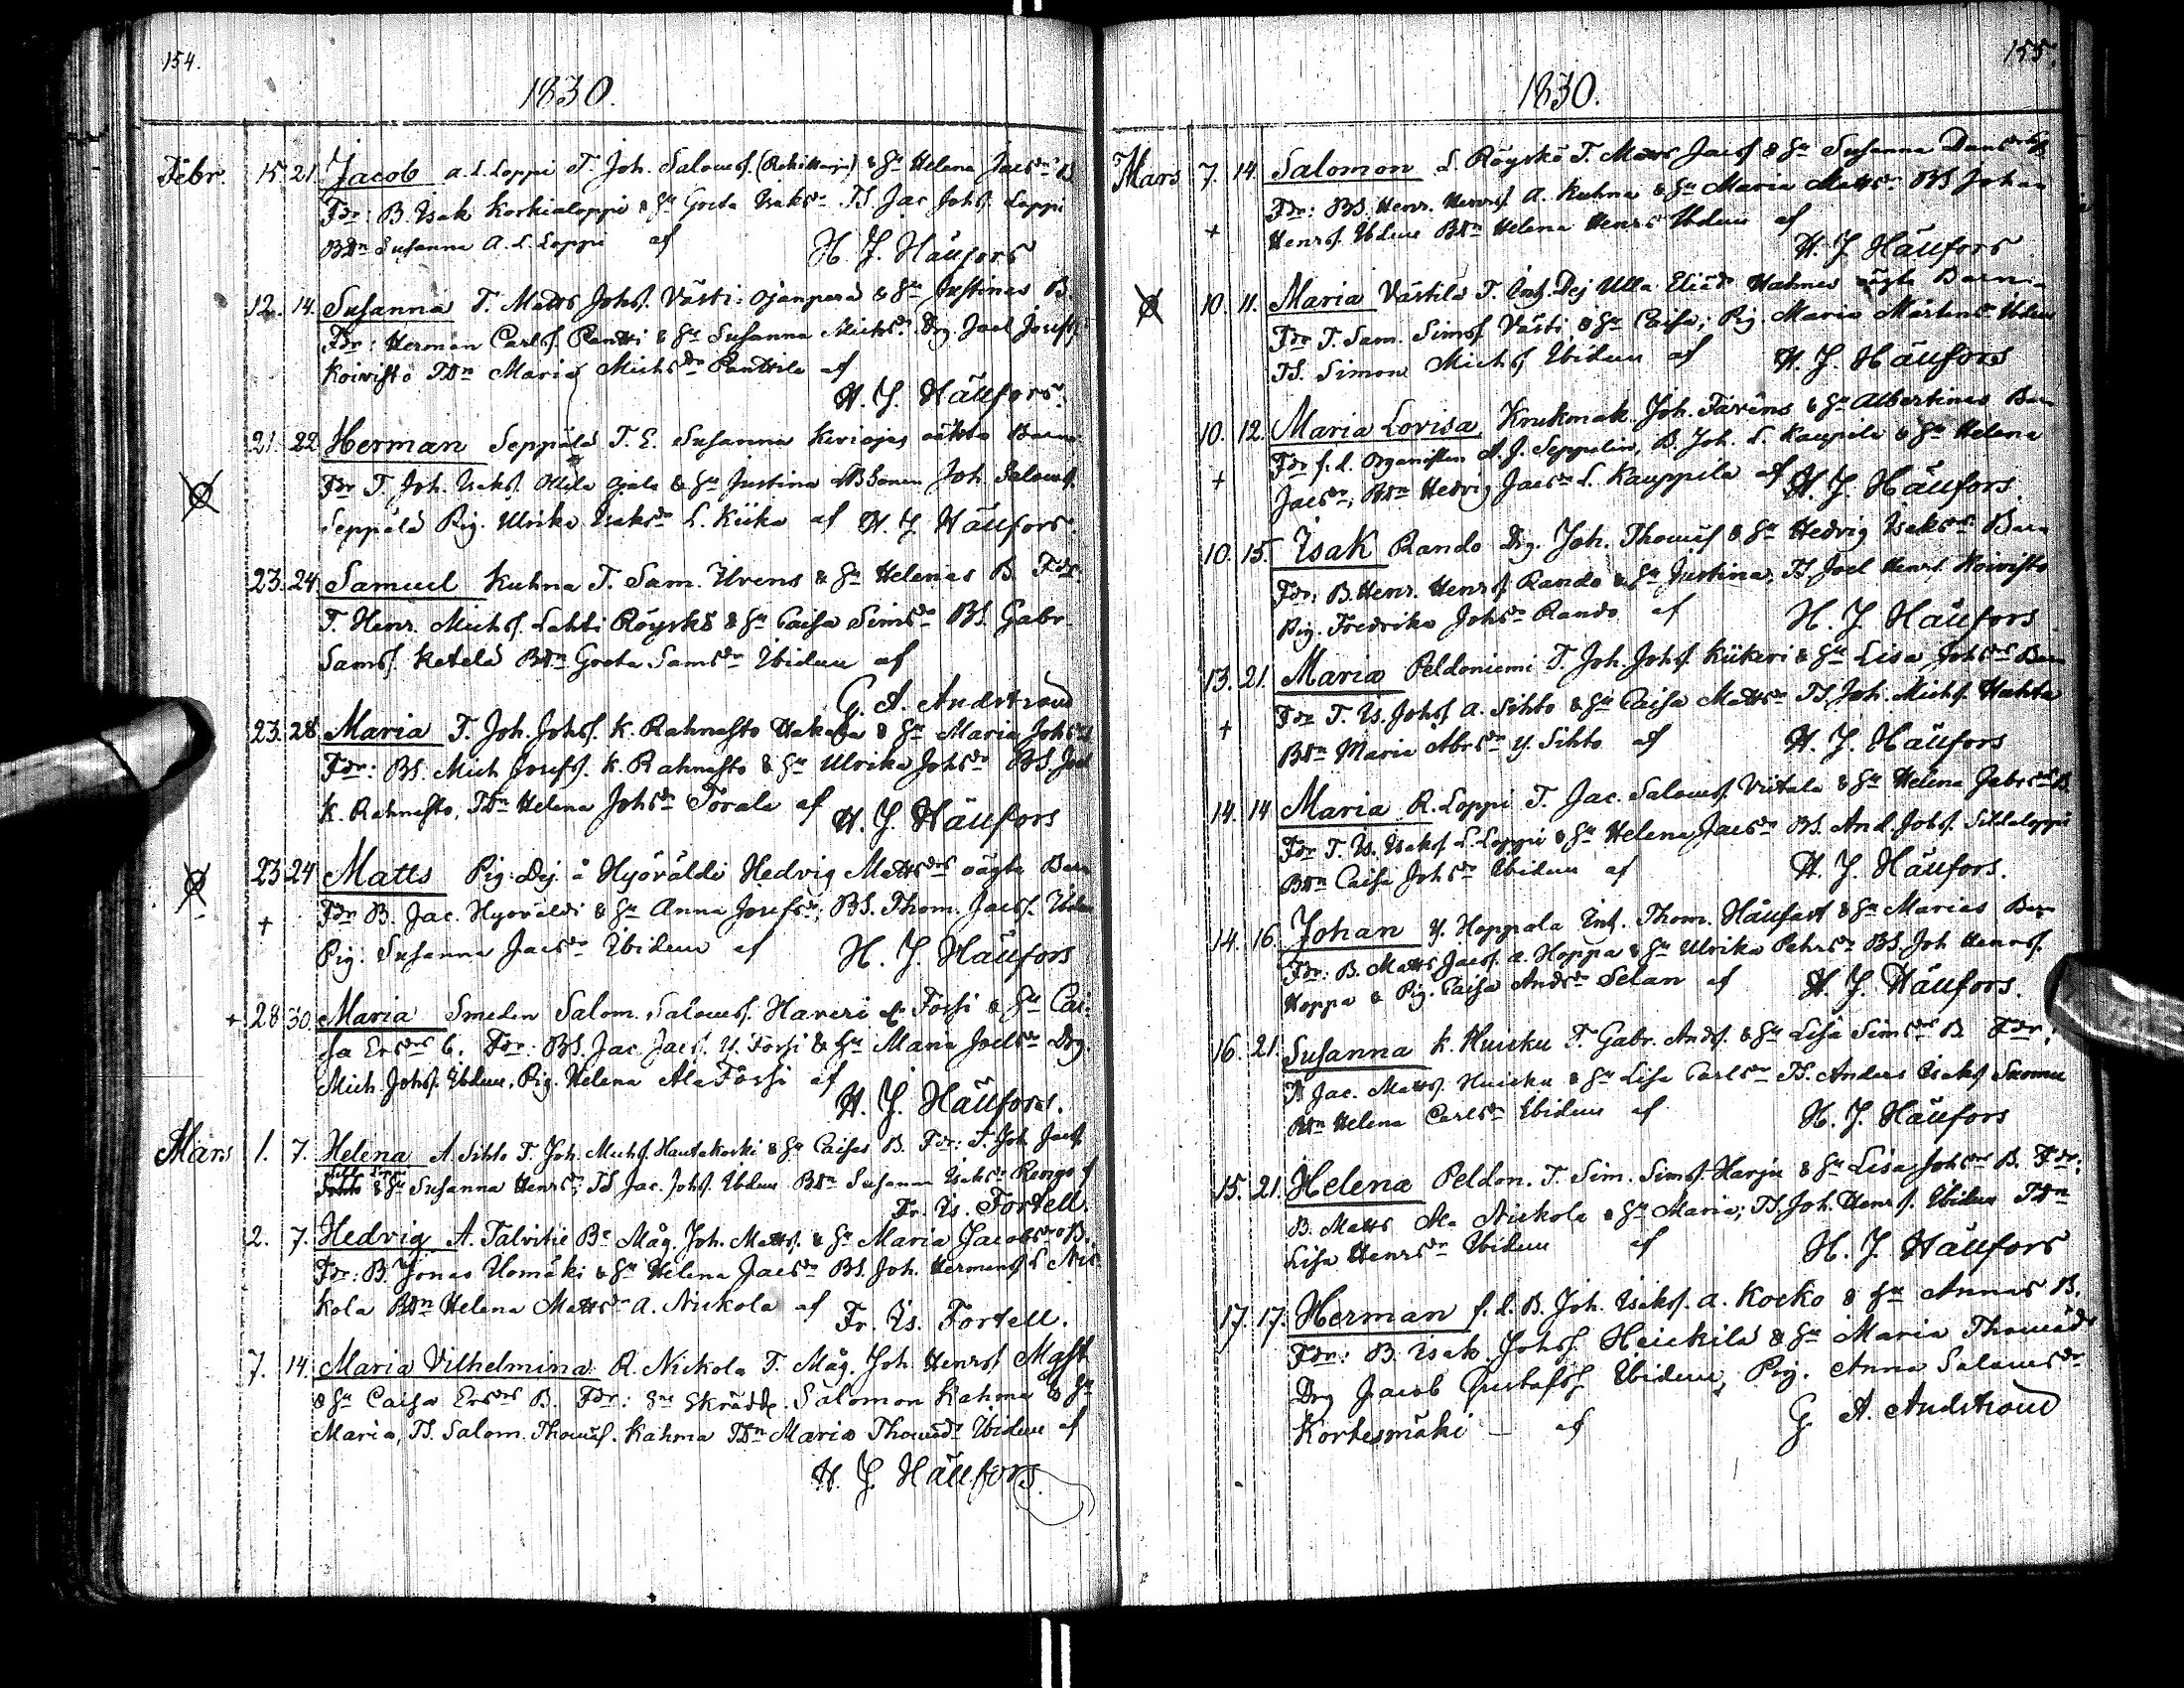 154.
1830.
Febr. 15. 21. Jacob a. L. Loppi T. Joh. Saloms. & Hu Helena Jacsdrs B
Fdr: B. Isak Korkialoppi & Hu Greta Isaksdr TS. Jac. Johs. Loppi
BDn Susanna A. L. Loppi af H. J. Häufors
12. 14. Susanna T. Matts Johs. Västi Ojanperä & Hu Justinas B.
Fdr: Herman Carls. Pentti & Hu Susanna Michsdr Drg. Joel Josefs.
Koivisto TDn Maria Michsdr Panttila af
H. J. Häufors.
21. 22. Herman Seppälä T. E. Susanna Keriojas oäkta Barn
Fdr T. Joh. Isaks. Ollila Ojala & Hu Justina BSonen Joh. Saloms.
Seppälä Pig. Ulrika Isaksdr L. Kiika af H. J. Häufors.
23. 24. Samuel Kuhna T. Sam. Urens & Hu Helenas B. Fdr.
T. Henr. Michs. Lahti Röyskö & Hu Caisa Simsdr BS. Gabr.
Sams. Ketela BDn Greta Samsdr Ibidem af
G. A. Andstrond
23. 28. Maria T. Joh. Johs. K. Rahnasto Hakala & Hu Maria Johsdrs
Fdr: BS. Mich Josefs. K. Rahnasto & Hu Ulrika Johsdr BS. Joel
K. Rahnasto, TDn Helena Johsdr Torala af H. J. Häufors
23 24 Matts Pig. Dej. å Hyöväldi Hedvig Mattsdrs oägta Barn
+ Fdr B. Jac. Hyöväldi & Hu Anna Josefsdr; BS. Thom. Jacs. Ibdm
Pig. Susanna Jacsdr Ibidem af H. J. Häufors
+ 28 30. Maria Smeden Salom. Saloms. Haveri Forssi & Hu Cai-
sa Ersdrs B. Fdr: BS. Jac Jacs. Y. Forssi & Hu Maria Joelsdr Drg.
Mich. Johs. Ibdem, Pig. Helena Ala Forssi af
H. J. Häufors.
Mars 1. 7. Helena A. Sihto T. Joh. Michs. Hautakoski & Hu Caisas B. Fdr: T. Joh Jacs.
Sihto & Hu Susanna Henrsdr, TS Jac. Johs. Ibdem BDn Susanna Isaksdr Rengo af
Fr. Is. Fortell.
2. 7. Hedvig A. Talvitie Be Måg. Joh. Matts. & Hu Maria Jacobsdrs B.
Fdr: B. Jonas Uomäki & Hu Helena Jacsdr BS. Joh. Hermans L Nic
kola BDn Helena Mattsdr A. Nickola af Fr. Is. Fortell.
7. 14. Maria Vilhelmina R. Nickola T. Måg. Joh. Henrs. Mast
& Hu Caisa Ersdrs B. Fdr: Skrädd. Salomon Kahma & Hu
Maria, TS. Salom. Thoms. Kahma TDn Maria Thomsdr Ibidem af
H. J. Häufors.
155.
1830.
Mars 7. 14. Salomon L. Röyskö T. Matts Jacs & Hu Susanna Danrs B
Fdr: BS. Henr. Henrs. A. Kuhna & Hu Maria Mattsdr BS Johan
+ Henrs. Ibdem BDn Helena Henrsdr Ibdem af
H. J. Häufors
10. 11. Maria Västilä T. Enk. Dej Ulla Eliædr Hahnes oägta Barn
Fdr T. Sam. Sims Västi & Hu Caisa; Pig. Maria Mårtensdr Ibdem
TS. Simon Michs Ibidem af H. J. Häufors
10. 12. Maria Lovisa Krukmak. Joh. Faréns & Hu Albertinas Barn
Fdr f. d. Organisten A. J. Seppelin, B. Joh. L. Kauppila & Hu Helena
+ Jacsdr, BDn Hedvig Jacsdr L. Kauppila af H. J. Häufors.
10. 15. Isak Rando Drg. Joh. Thoms & Hu Hedvig Isaksdrs Barn
Fdr: B. Henr. Henrs. Rando & Hu Justina, TS. Joel Henrs. Koivisto
Pig. Fredrika Johsdr Rando af H. J. Häufors.
13. 21. Maria Peldoniemi T. Joh. Johs. Kiikeri & Hu Lisa Johsdrs Barn
+ Fdr T. Is. Johs A. Sihto & Hu Caisa Mattsdr TS. Joh. Michs. Huhta
BDn Maria Abrsdr Y. Sihto af H. J. Häufors
14. 14 Maria R. Loppi T. Jac. Saloms. Viitala & Hu Helena Gabrsdrs B.
Fdr T. Is. Isaks. L. Loppi & Hu Helena Jacsdr BS. And. Johs. Sillaloppi
BDn Caisa Johsdr Ibidem af H. J. Häufors.
14. 16. Johan Y. Hoppala Inh. Thom. Häufast & Hu Marias Barn
Fdr: B. Matts Jacs. A. Hoppa & Hu Ulrika Pehrsdr BS. Joh Henrs.
Hoppa & Pig. Caisa Andsdr Selan af H. J. Häufors.
16. 21. Susanna K. Huicku T. Gabr. Ands. & Hu Lisa Simsdrs B. Fdr:
T Jac. Matts. Huicku & Hu Lisa Carlsdr TS. Anders Isaks Suomu
BDn Helena Carlsdr Ibidem af H. J. Häufors
15. 21. Helena Peldon. T. Sim. Sims. Harju & Hu Lisa Johsdrs B. Fdr:
B. Matts Ala Nickola & Hu Maria; TS. Joh. Henrs. Ibidem TDn
Lisa Henrsdr Ibidem af H. J. Häufors
17. 17. Herman f. d. B. Joh. Isaks. A. Kocko & Hu Annas B.
Fdr: B. Isak Johs. Heickilä & Hu Maria Thomædr
Drg Jacob Gustafs. Ibidem, Pig. Anna Salomsdr
Kortesmäki – af G. A. Andstrond